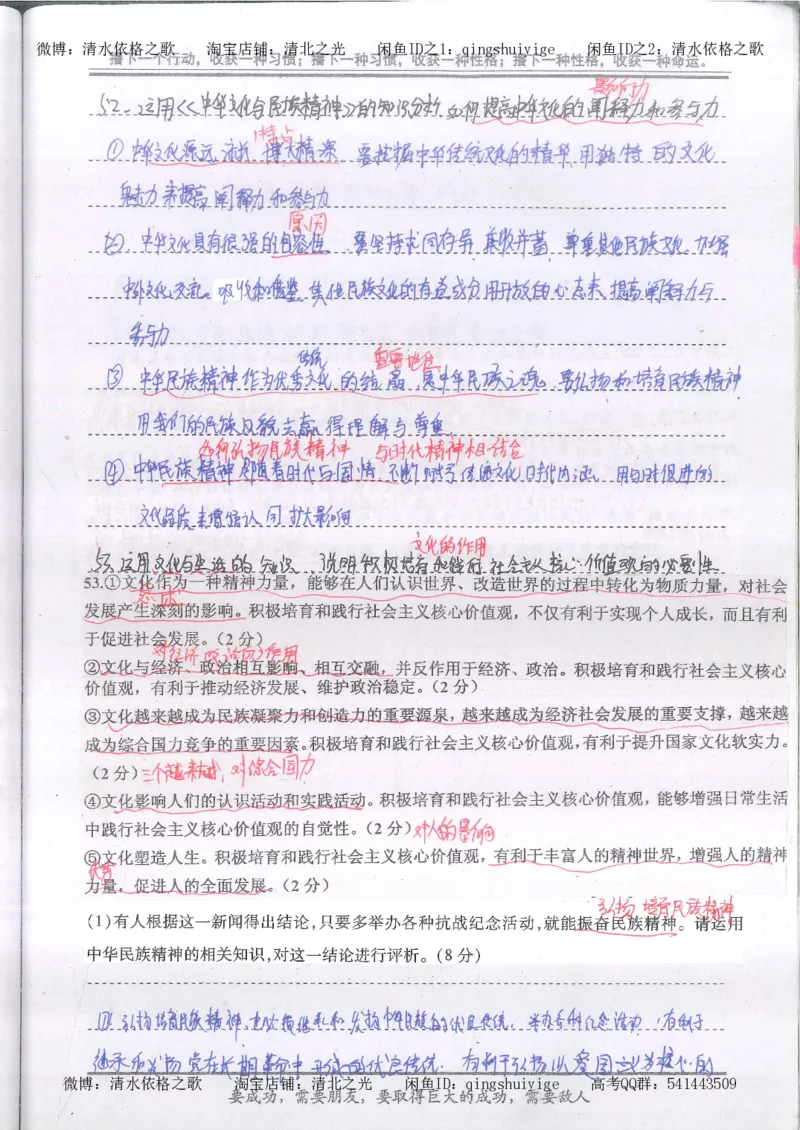 微博：清水依格之歌 淘宝店铺：清北之光 闲鱼ID之1：qingshuiyige 闲鱼ID之2：清水依格之歌
播下一个行动，收获一种习惯；播下一种习惯，收获一种性格；播下一种性格，收获一种命运。
影响力
52、运用《中华文化与民族精神》的知识分析，如何提高中华文化的阐释力和参与力
特点
①中华文化源远流长、博大精深 要挖掘中华传统文化的精华，用独特的文化
魅力来提高阐释力和参与力
原因
② 中华文化具有很强的包容性 要坚持求同存异、兼收并蓄，尊重其他民族文化，加强
文化交流。吸收和借鉴其他民族文化的有益成分，用开放的心态来提高阐释力与
参与力
重要地位
③ 中华民族精神作为优秀文化的结晶，是中华民族之魂，要弘扬和培育民族精神
用我们的民族风貌去赢得理解与尊重
如何弘扬民族精神 与时代精神相结合
④ 中华民族精神随着时代与国情，不断赋予传统文化时代内涵，用与时俱进的
文化品质来增强认同扩大影响
文化的作用
53、运用文化与生活的知识 说明积极培育和践行社会主义核心价值观的必要性
53.①文化作为一种精神力量，能够在人们认识世界、改造世界的过程中转化为物质力量，对社会
总述
发展产生深刻的影响。积极培育和践行社会主义核心价值观，不仅有利于实现个人成长，而且有利
于促进社会发展。（2 分）
对经济、政治反作用
②文化与经济、政治相互影响、相互交融，并反作用于经济、政治。积极培育和践行社会主义核心
价值观，有利于推动经济发展、维护政治稳定。（2 分）
③文化越来越成为民族凝聚力和创造力的重要源泉，越来越成为经济社会发展的重要支撑，越来越
成为综合国力竞争的重要因素。积极培育和践行社会主义核心价值观，有利于提升国家文化软实力。
（2 分）三个越来越，对综合国力
④文化影响人们的认识活动和实践活动。积极培育和践行社会主义核心价值观，能够增强日常生活
中践行社会主义核心价值观的自觉性。（2 分）对人的影响
⑤文化塑造人生。积极培育和践行社会主义核心价值观，有利于丰富人的精神世界，增强人的精神
优秀
力量，促进人的全面发展。（2 分）
弘扬、培育民族精神
(1)有人根据这一新闻得出结论，只要多举办各种抗战纪念活动，就能振奋民族精神。请运用
中华民族精神的相关知识，对这一结论进行评析。(8 分)
① 弘扬培育民族精神，必须继承和发扬中华民族的优良传统。举办各种纪念活动，有利于
继承和发扬党在长期革命中形成的优良传统，有利于弘扬以爱国主义为核心的
微博：清水依格之歌 淘宝店铺：清北之光 闲鱼ID：qingshuiyige 高考QQ群：541443509
要成功，需要朋友，要取得巨大的成功，需要敌人